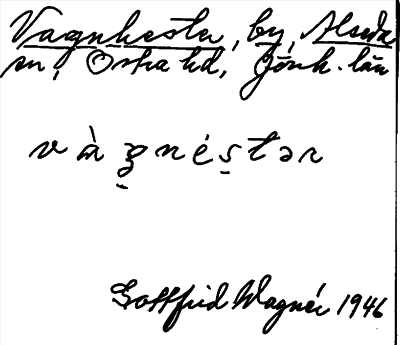 Vagnhester, by, Alseda
sn, Östra hd, Jönk. län
v à g̱ n é ṣ t ə r
Gottfrid Wagnér 1946